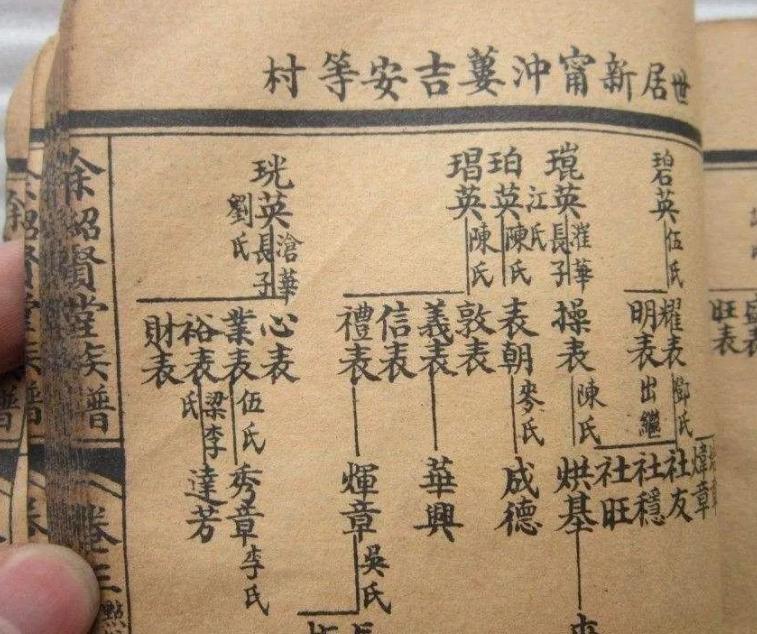 世居新甯沖蔞吉安等村
碧英
伍氏
琨英
灌華
長子
江氏
珀英
陳氏
琩英
陳氏
珖英
滄華
長子
劉氏
旺表
耀表
鄧氏
明表
出繼
操表
陳氏
表朝
麥氏
敦表
義表
信表
禮表
心表
業表
伍氏
裕表
梁李氏
財表
煒章
社友
社穩
社旺
烘基
成德
華興
輝章
吳氏
秀章
李氏
達芳
余紹賢堂族譜
卷三